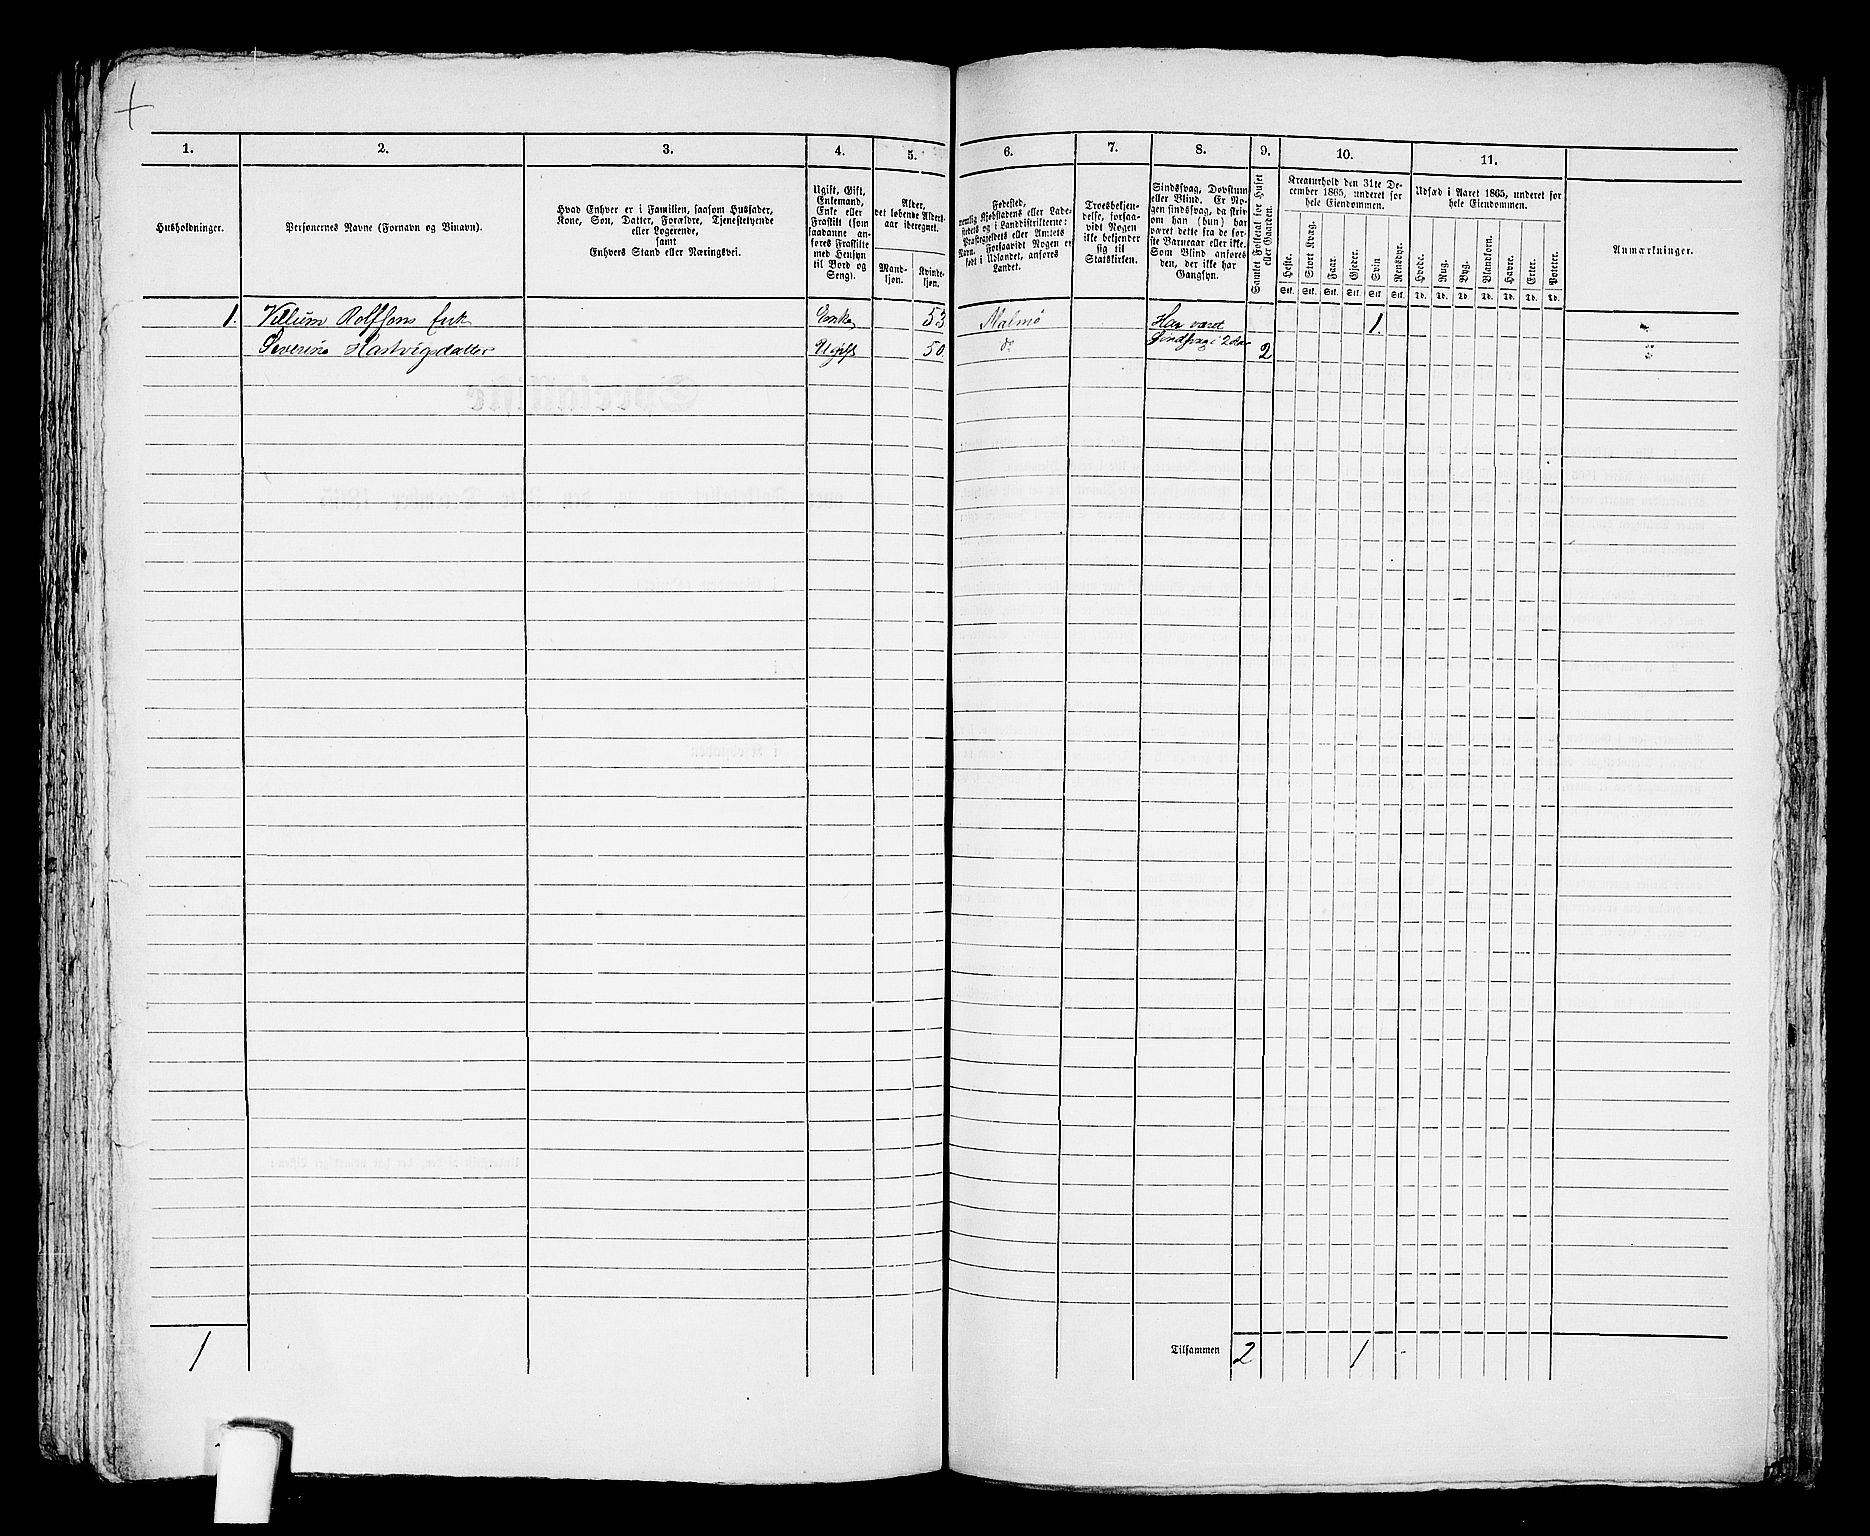 1.
2.
3.
4.
5.
6.
7.
8.
9.
10.
11.
Husholdninger.
Personernes Navne (Fornavn og Binavn).
Hvad Enhver er i Familien, saasom Husfader,
Kone, Søn, Datter, Forældre, Tjenestetyende
eller Logerende,
samt
Enhvers Stand eller Næringsvei.
Ugift, Gift,
Enkemand,
Enke eller
Fraskilt (som
saadanne an-
føres Fraskilte
med Hensyn
til Bord og
Seng).
Alder,
det løbende Alders-
aar iberegnet.
Mand-
kjøn.
Kvinde-
kjøn.
Fødested,
nemlig Kjøbstadens eller Lade-
stedets og i Landdistrikterne:
Præstegjeldets eller Amtets
Navn. Forsaavidt Nogen er
født i Udlandet, anføres
Landet.
Troesbekjen-
delse, forsaa-
vidt Nogen
ikke bekjender
sig til
Statskirken.
Sindssvag, Døvstum
eller Blind. Er No-
gen sindssvag, da skriv
om han (hun) har
været dette fra de før-
ste Barneaar eller ikke.
Som Blind anføres
den, der ikke har
Gangsyn.
Samlet Folketal for Huset
eller Gaarden.
Kreaturhold den 31te De-
cember 1865, underet for
hele Eiendommen.
Heste.
Stort Kvæg.
Faar.
Gjeder.
Svin
Rensdyr.
Stk. Stk. Stk. Stk. Stk. Stk.
Udsæd i Aaret 1865, underet for
hele Eiendommen.
Hvede.
Rug.
Byg.
Blandkorn.
Havre.
Erter.
Poteter.
Td. Td. Td. Td. Td. Td. Td.
Anmærkninger.
1. Villum Rolfsens Enk Enke 53 Malmø Har været 1.
Severine Hartvigsdatter Ugift 50 do Sindssvag i 2 Aar 2
1
Tilsammen 2 1